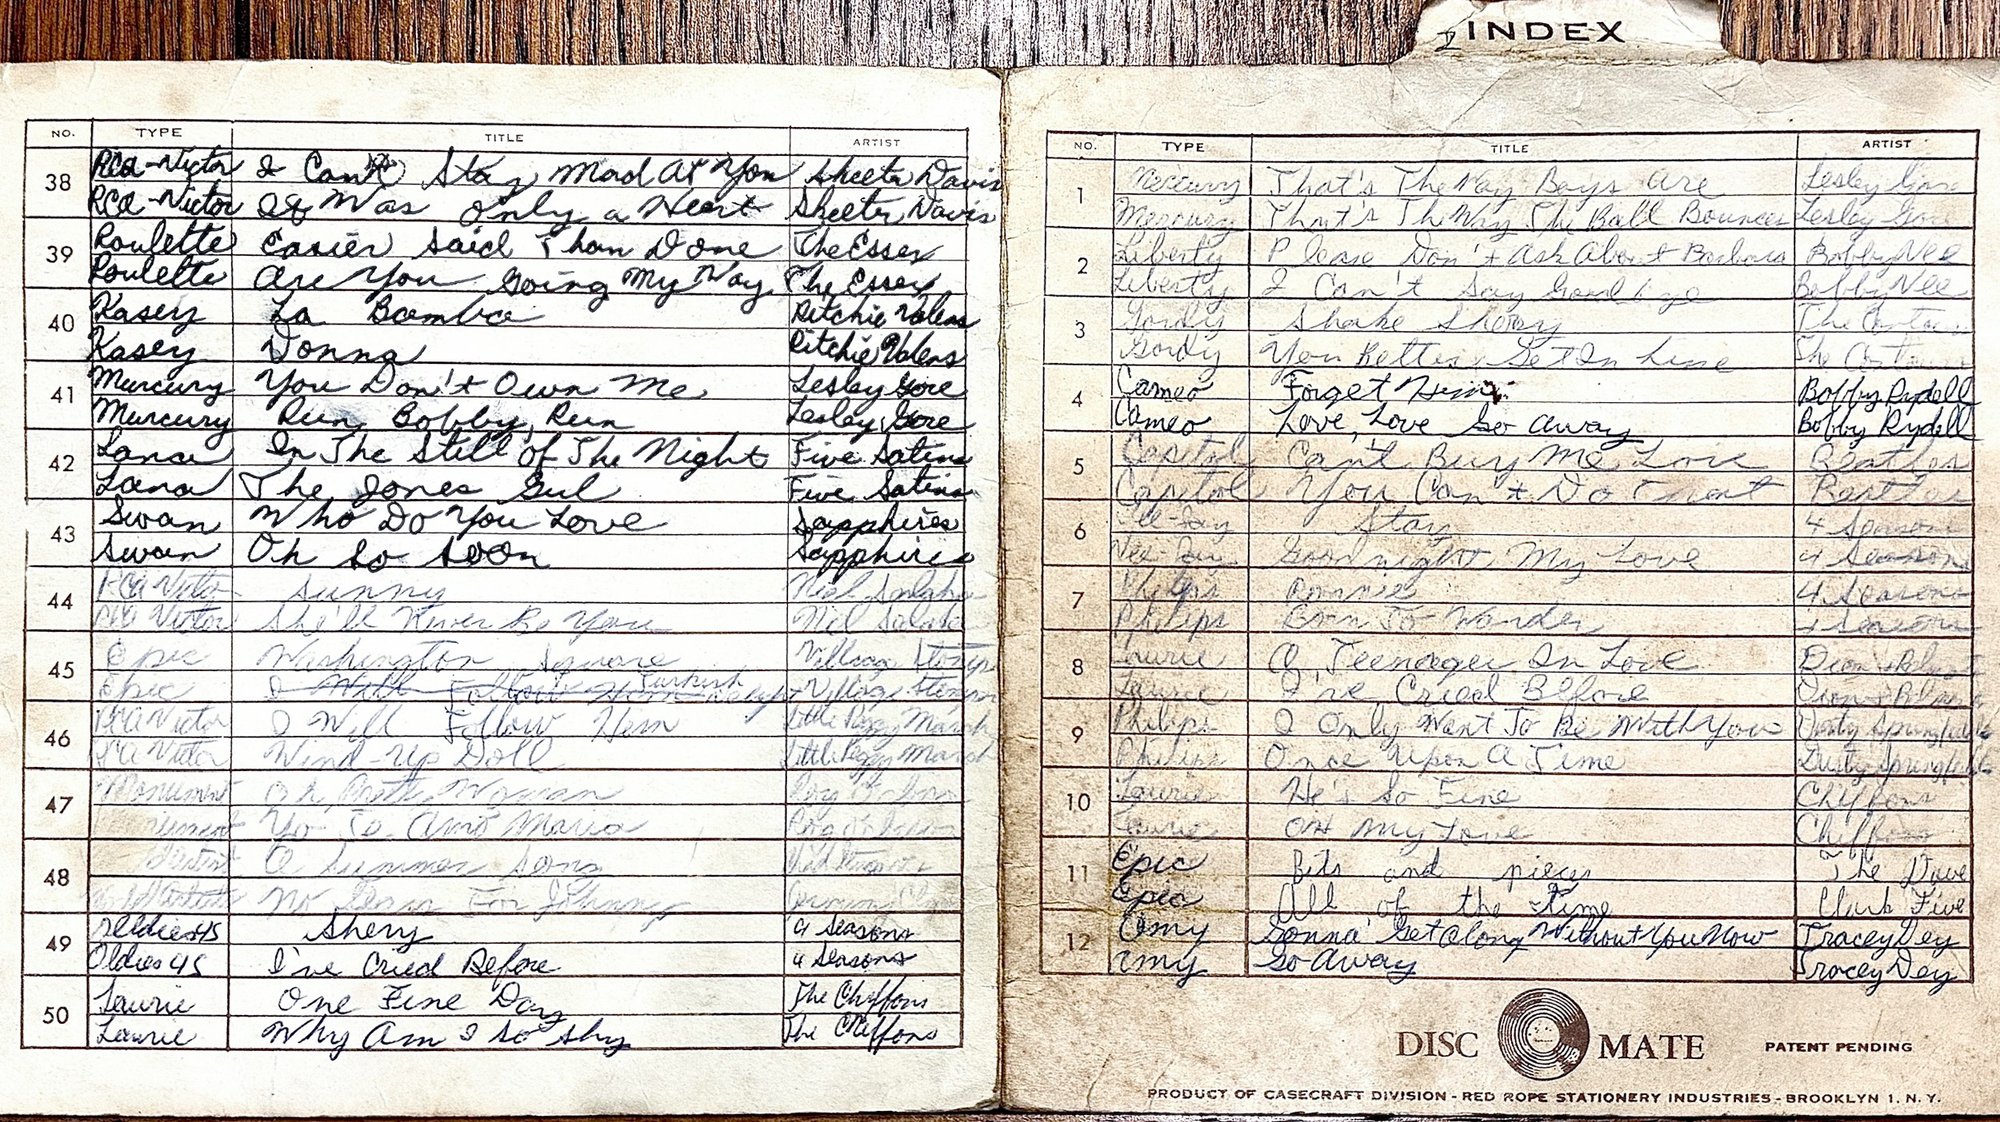 INDEX
NO. TYPE TITLE ARTIST
38 RCA-Victor I Can't Stay Mad At You Skeeter Davis
RCA-Victor It Was Only a Heart Skeeter Davis
39 Roulette Easier Said Than Done The Essex
Roulette Are You Going My Way The Essex
40 Kasey La Bamba Ritchie Valens
Kasey Donna Ritchie Valens
41 Murcury You Don't Own Me Lesley Gore
Murcury Run, Bobby, Run Lesley Gore
42 Lana In The Still Of The Night Five Satins
Lana The Jones Girl Five Satins
43 Swan Who Do You Love Sapphires
Swan Oh So Soon Sapphires
44 RCA Victor Sunny
RCA Victor She'll Never Be You
45 Epic Washington Square Village Stomp
Epic I Will Follow Him Turkish Village Stompers
46 RCA Victor I Will Follow Him Little Peggy March
RCA Victor Wind-Up Doll Little Peggy March
47 Monument Oh Pretty Woman
Yo Te Amo Maria
48 A Summer Song
No Tears For Johnny
49 Oldies 45 Shery 4 Seasons
Oldies 45 I've Cried Before 4 Seasons
50 Laurie One Fine Day The Chiffons
Laurie Why Am I So Shy The Chiffons
NO. TYPE TITLE ARTIST
1 Mercury That's The Way Boys Are Lesley Gore
Mercury That's Th Way The Ball Bounces Lesley Gore
2 Liberty Please Don't Ask About Barbara Bobby Vee
Liberty I Can't Say Goodbye Bobby Vee
3 Gordy Shake Sherry The
Gordy You Better Get In Line The
4 Cameo Forget Him Bobby Rydell
Cameo Love, Love Go Away Bobby Rydell
5 Capitol Can't Buy Me Love Beatles
Capitol You Can't Do That Beatles
6 Vee-Jay Stay 4 Seasons
Vee-Jay Goodnight My Love 4 Seasons
7 Philips Ronnie 4 Seasons
Philips Born To Wander 4 Seasons
8 Laurie A Teenager In Love Dion + Belmonts
Laurie I've Cried Before Dion + Belmonts
9 Philips I Only Want To Be With You Dusty Springfield
Philips Once Upon A Time Dusty Springfield
10 Laurie He's So Fine Chiffons
Laurie Oh My Love Chiffons
11 Epic Bits and pieces The Dave
Epic All of the time Clark Five
12 Amy Gonna' Get Along Without You Now Tracey Dey
Amy Go Away Tracey Dey
DISC MATE PATENT PENDING
PRODUCT OF CASECRAFT DIVISION - RED ROPE STATIONERY INDUSTRIES - BROOKLYN 1, N. Y.